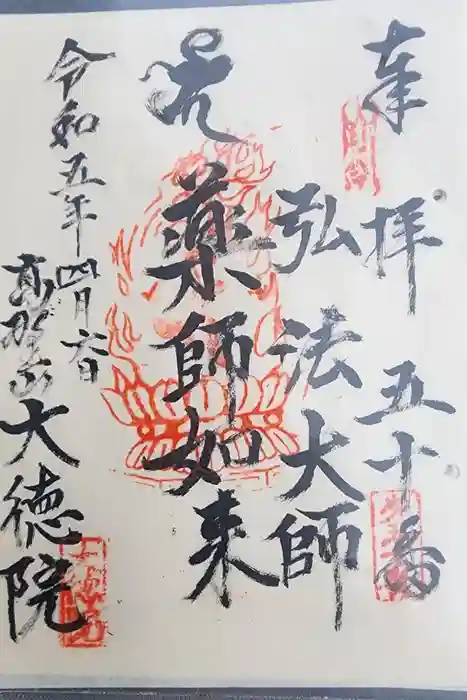 奉拝 五十番
弘法大師
薬師如来
令和五年四月六日
高野山 大徳院